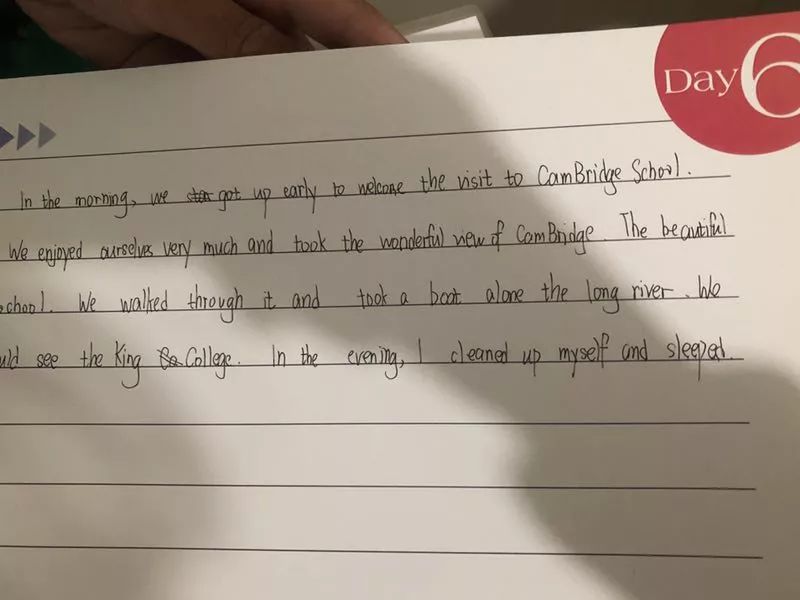 Day 6
In the morning, we got up early to welcome the visit to CamBridge School.
We enjoyed ourselves very much and took the wonderful view of CamBridge. The beautiful
school. We walked through it and took a boat alone the long river. We
uld see the King College. In the evening, I cleaned up myself and sleeped.